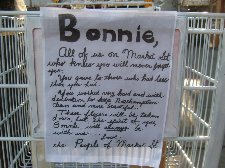 Bonnie,
All of us on Market St
who knew you will never forget
you.
You gave to those who had less
than you had.
You worked very hard and with
dedication to keep Northampton
clean and more beautiful.
These flowers will be taken
down, but the spirit of you,
Bonnie, will always be
with us.
Love,
the People of Market St